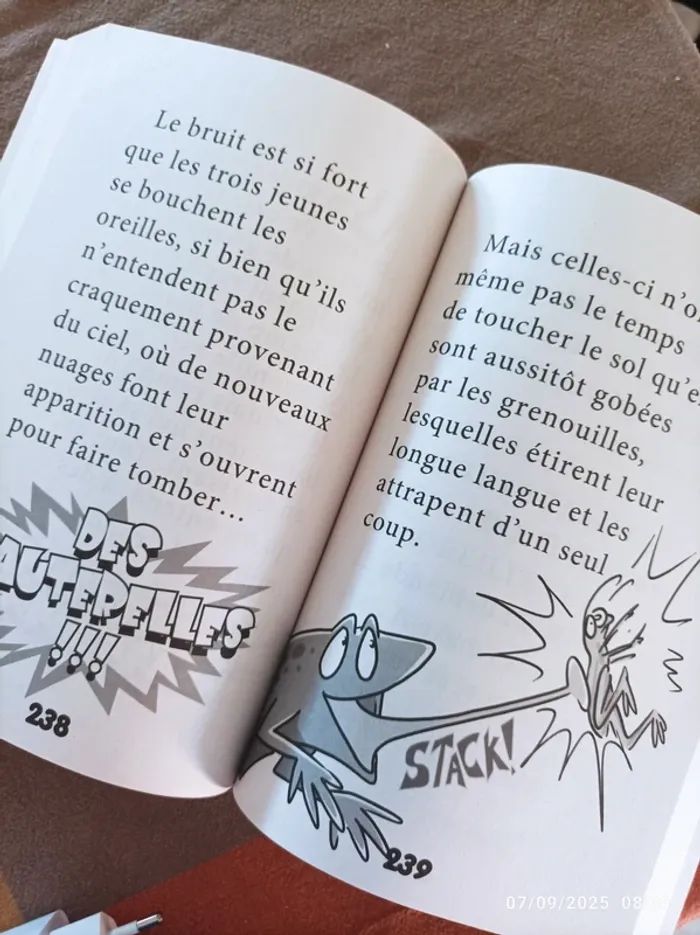 Le bruit est si fort
que les trois jeunes
se bouchent les
oreilles, si bien qu'ils
n'entendent pas le
craquement provenant
du ciel, où de nouveaux
nuages font leur
apparition et s'ouvrent
pour faire tomber...
DES
AUTERELLES
!!!!
238
Mais celles-ci
même pas le temps
de toucher le sol
sont aussitôt gobées
par les grenouilles,
lesquelles étirent leur
longue langue et les
attrapent d'un seul
coup.
STACK!
239
07/09/2025